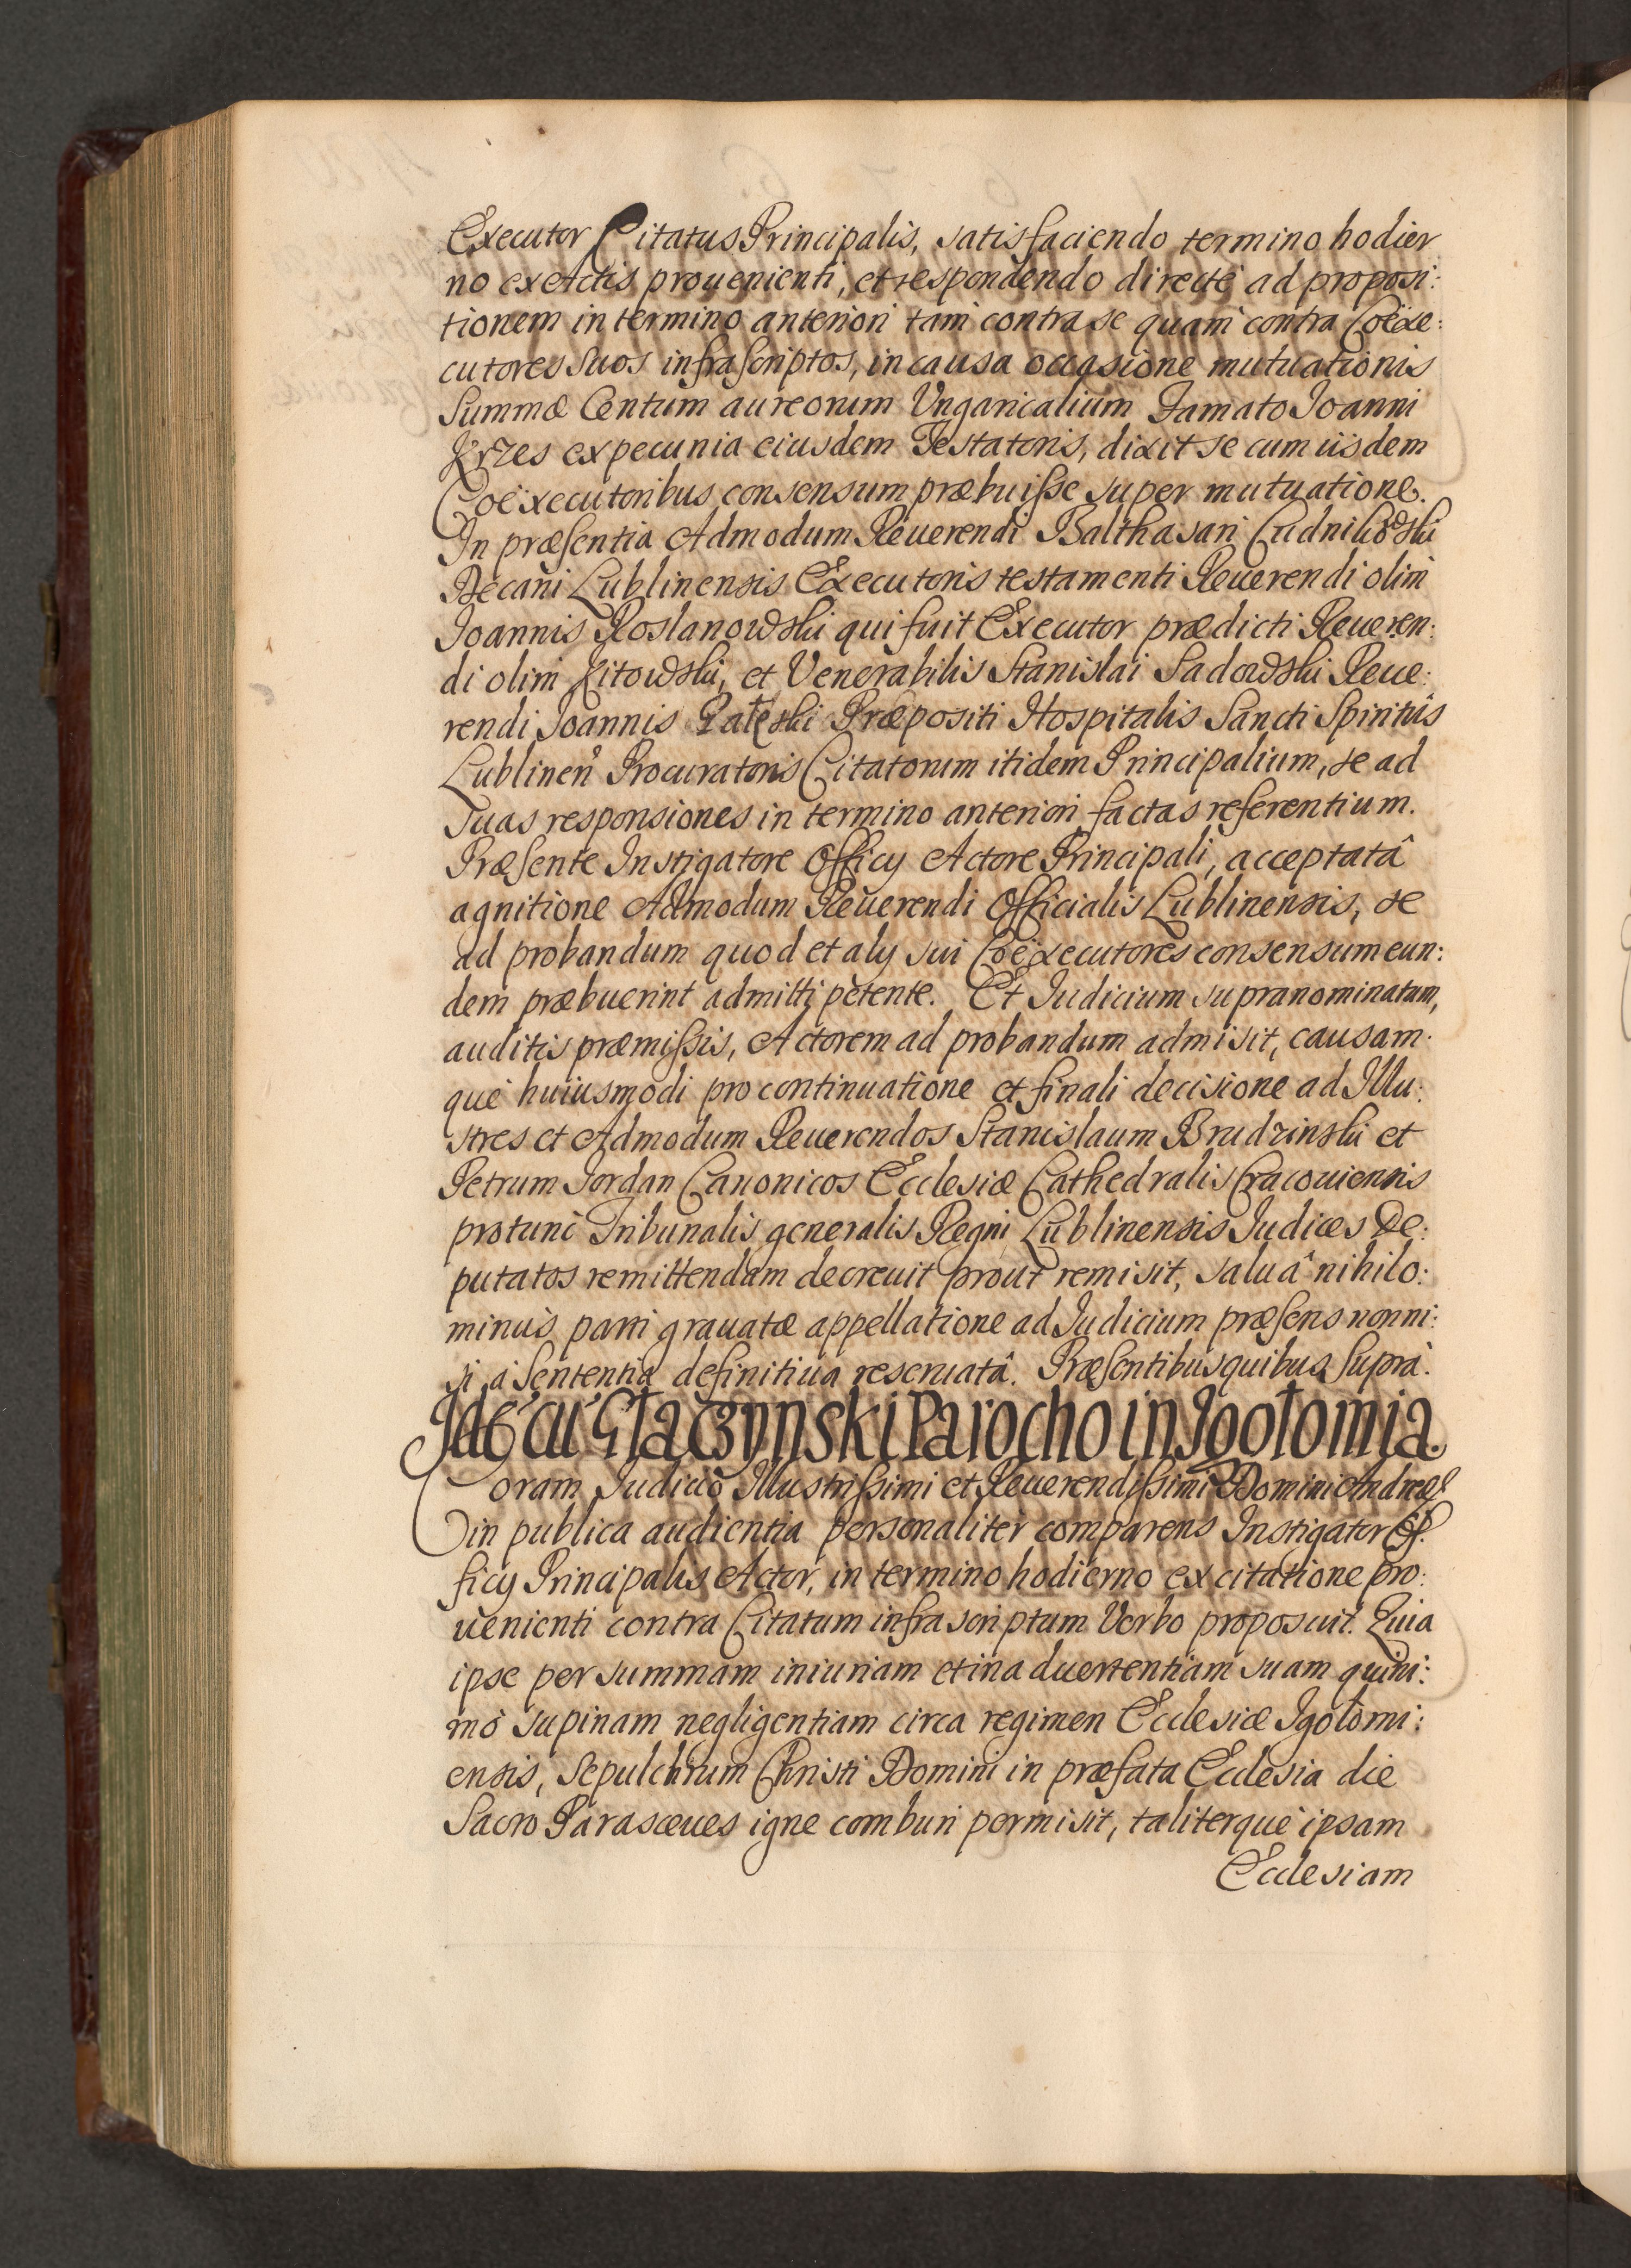 Executor Citatus Principalis, satisfaciendo termino hodier
no ex Actis prouenienti, et respondendo directe ad proposi:
tionem in termino anteriori tam contra se quam contra Coexe:
cutores suos infrascriptos, in causa occasione mutuationis
Summæ Centum aureorum Vngaricalium Famato Ioanni
ex pecunia eiusdem Testatoris, dixit se cum iisdem
Coëxecutoribus consensum præbuisse super mutuatione.
In præsentia Admodum Reuerendi Balthasari
Decani Lublinensis Executoris testamenti Reuerendi olim
Ioannis Roslanowski qui fuit Executor prædicti Reueren:
di olim Kitowski, et Venerabilis Stanislai Sadowski Reue:
rendi Ioannis Præpositi Hospitalis Sancti Spiritûs
Lublinen Procuratoris Citatorum itidem Principalium, se ad
suas responsiones in termino anteriori factas referentium.
Præsente Instigatore Officij Actore Principali, acceptatâ
agnitione Admodum Reuerendi Officialis Lublinensis, se
ad probandum quod et alij sui Coëxecutores consensum eun:
dem præbuerint admitti petente. Et Iudicium supranominatum,
auditis præmissis, Actorem ad probandum admisit, causam:
que huiusmodi pro continuatione et finali decisione ad Illu:
stres et Admodum Reuerendos Stanislaum Brudzinski et
Petrum Iordan Canonicos Ecclesiæ Cathedralis Cracouiensis
protunc Tribunalis generalis Regni Lublinensis Iudices De:
putatos remittendam decreuit prout remisit, saluâ nihilo:
minus parti grauatæ appellatione ad Iudicium præsens nonni:
si à Sententia definitiua reseruatâ. Præsentibus quibus Supra.
Parocho in Igołomia
Coram Iudicio Illustrissimi et Reuerendissimi Domini Andreæ
in publica audientia personaliter comparens Instigator Of:
ficij Principalis Actor, in termino hodierno ex citatione pro:
uenienti contra Citatum infrascriptum Verbo proposuit. Quia
ipse per summam iniuriam et inaduertentiam suam quini:
mo supinam negligentiam circa regimen Ecclesiæ Igołomi:
ensis, Sepulchrum Christi Domini in præfata Ecclesia die
Sacro Parasceues igne comburi permisit, taliterque ipsam
Ecclesiam